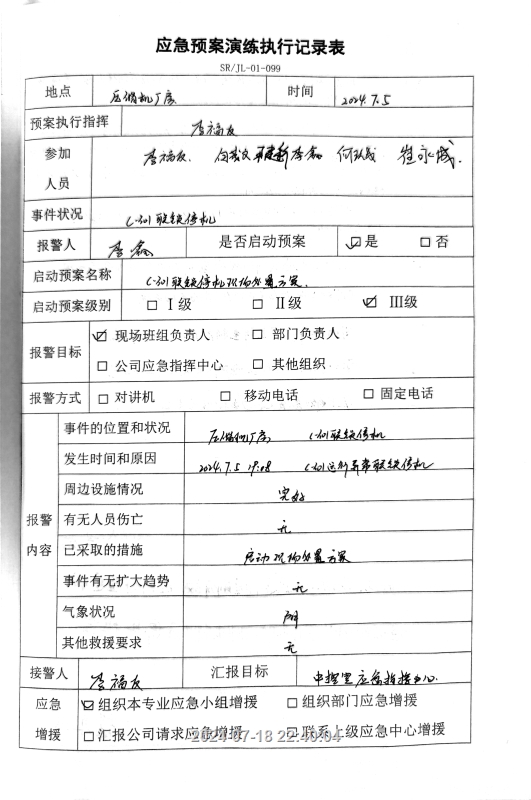 应急预案演练执行记录表
SR/JL-01-099
地点 压缩机厂房 时间 2024.7.5
预案执行指挥 李福友
参加人员 李福友. 李鑫
事件状况 C-301联锁停机
报警人 李鑫 是否启动预案 ☑是 □否
启动预案名称 C-301联锁停机现场处置方案.
启动预案级别 □ Ⅰ级 □ Ⅱ级 ☑ Ⅲ级
报警目标 ☑ 现场班组负责人 □ 部门负责人
□ 公司应急指挥中心 □ 其他组织
报警方式 □ 对讲机 □ 移动电话 □ 固定电话
报警内容 事件的位置和状况 压缩机厂房 C-301联锁停机
发生时间和原因 2024.7.5 C-301运行异常联锁停机
周边设施情况 完好
有无人员伤亡 无
已采取的措施 启动现场处置方案
事件有无扩大趋势 无
气象状况
其他救援要求 无
接警人 李福友 汇报目标 中控室应急指挥中心.
应急增援 ☑组织本专业应急小组增援 □组织部门应急增援
□汇报公司请求应急增援 □联系上级应急中心增援
2024-07-18 22:40:04